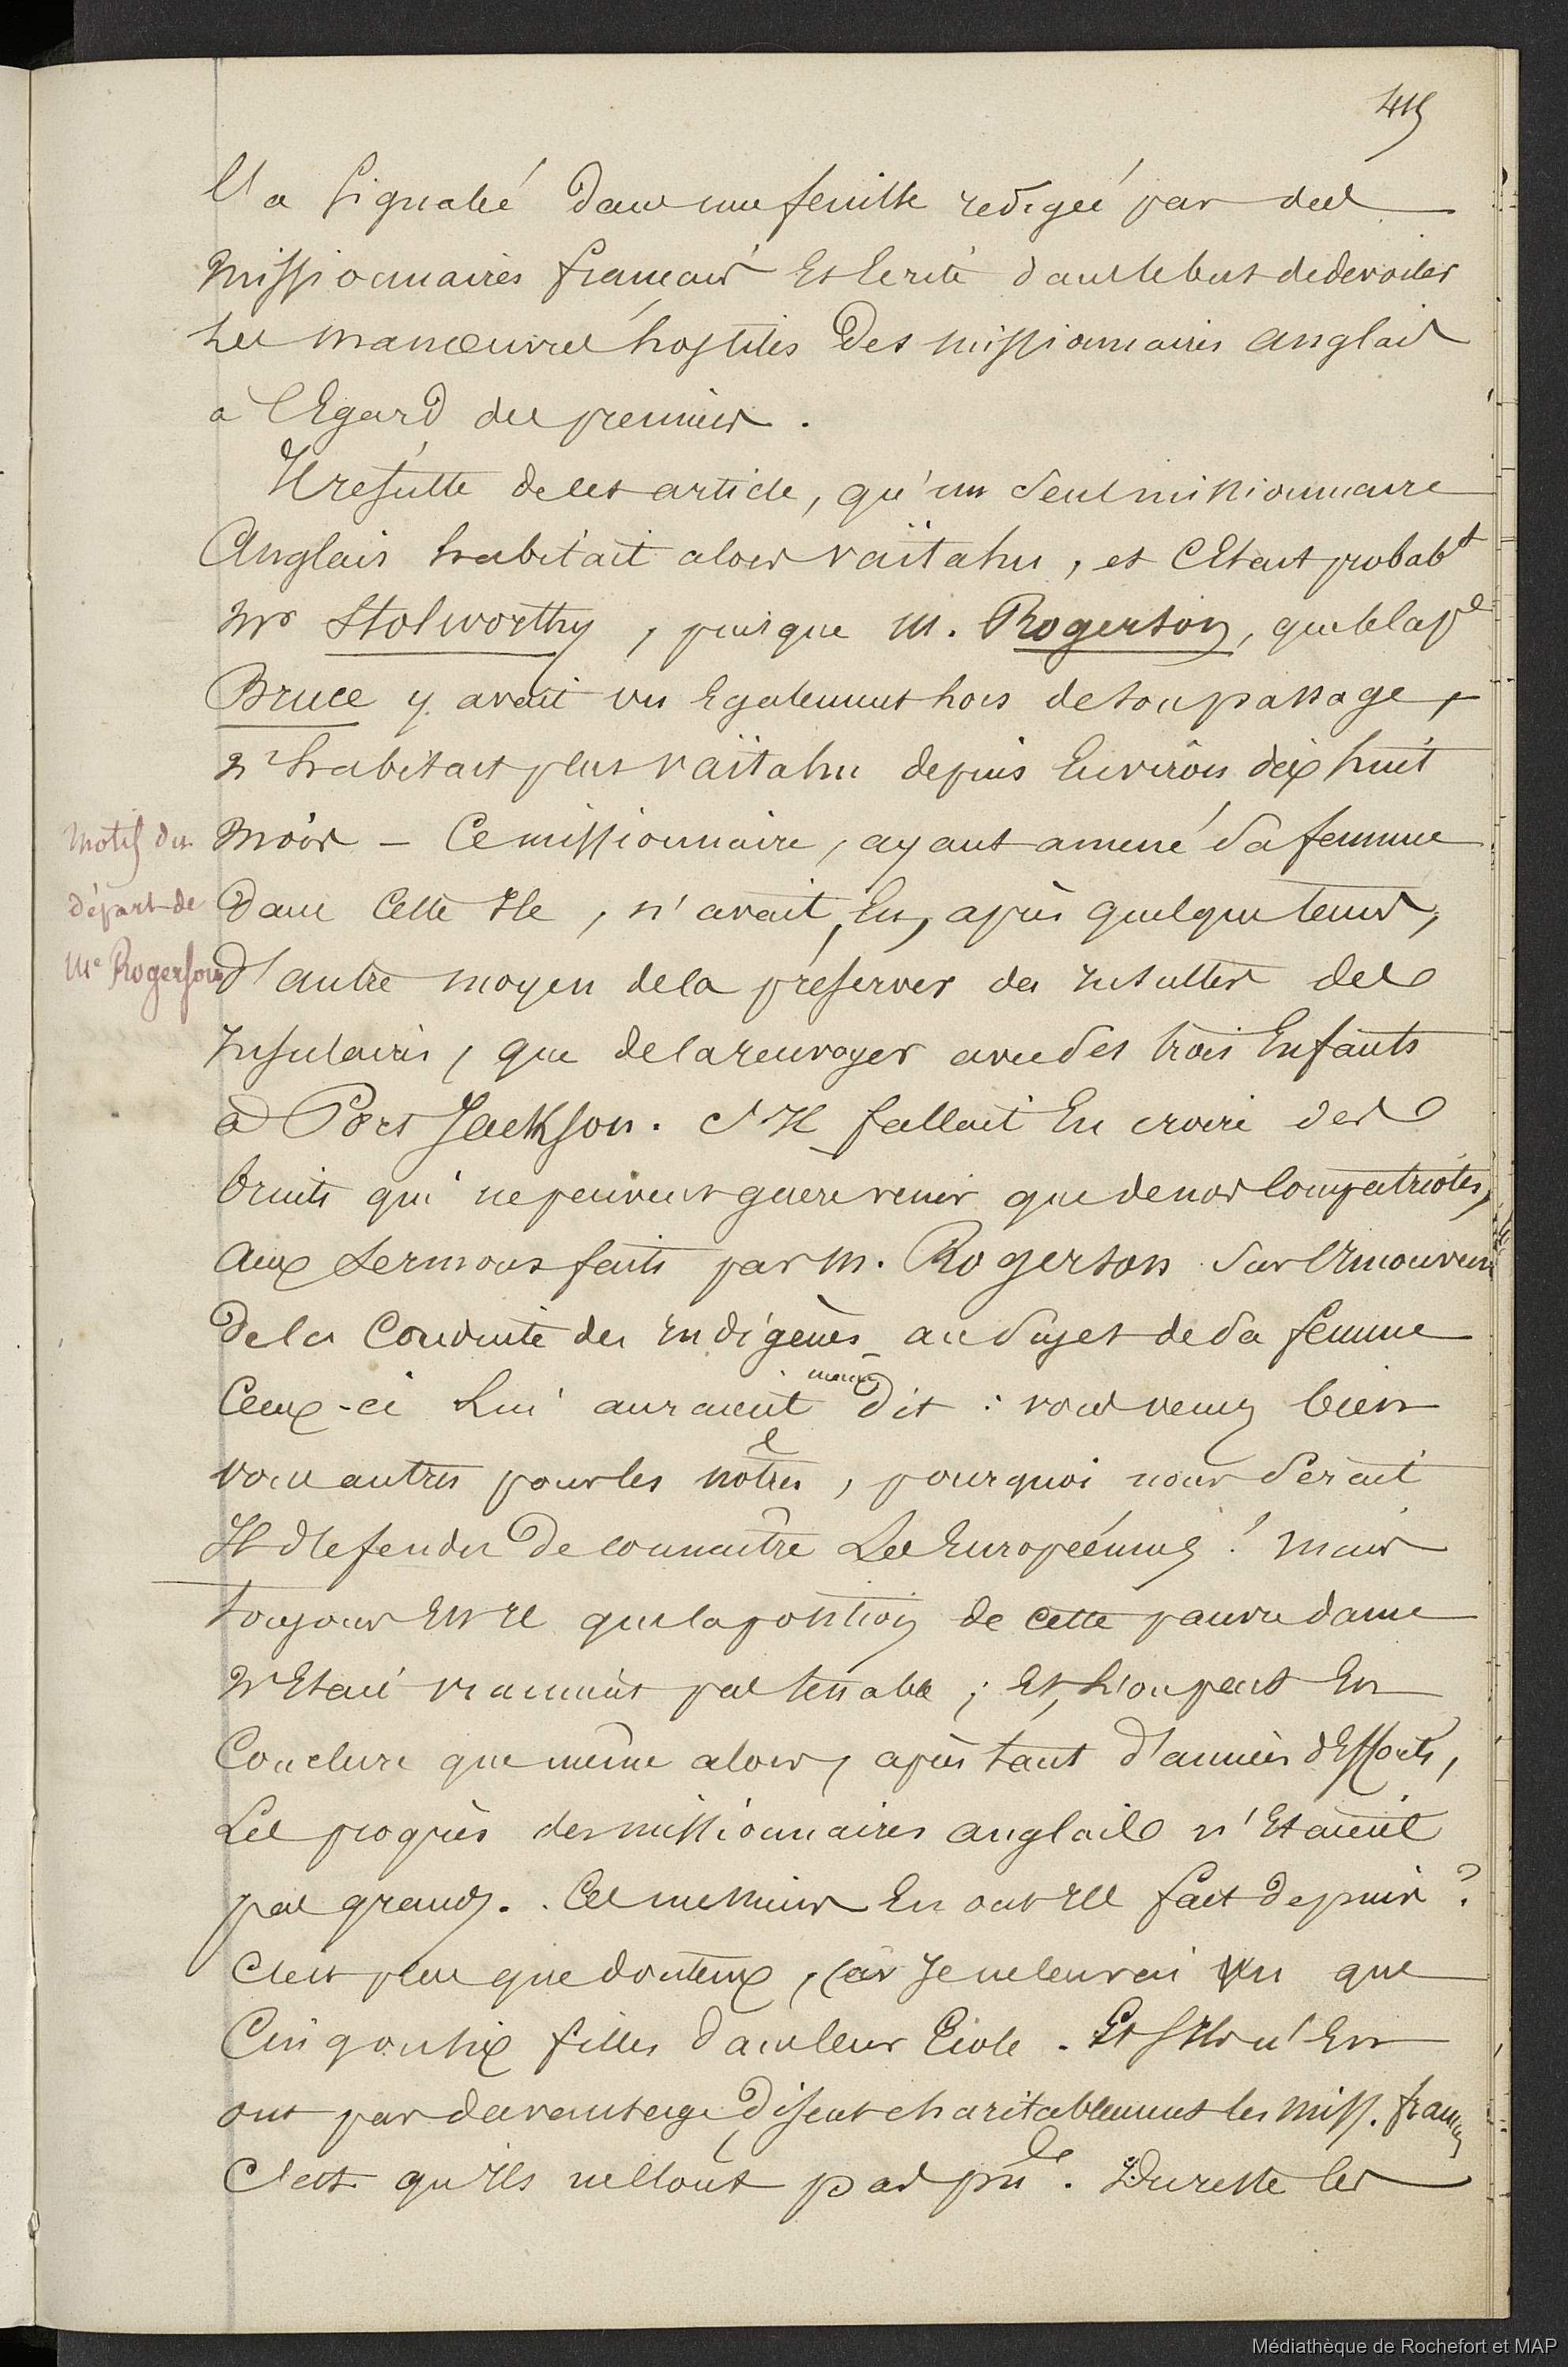 415
l'a signalé dans une feuille redigée par des
missionnaires français et Ecrite dans le but de devoiler
Les manœuvres hostiles des missionnaires anglais
a l'Egard des premiers.
Il resulte de cet article, qu'un seul missionnaire
Anglais habitait alors vaïtahu, et C'Etait probabt
Mr Stolworthy, puisque M. Rogerson, que le cape
Bruce y avait vu Egalement lors de son passage,
n'habitait plus vaïtahu depuis Environ dix huit
Mois – Ce missionnaire, ayant amené sa femme
Dans Cette Ile, n'avait, Eu, après quelque tems,
d'autre moyen de la préserver des Insultes des
Insulaires, que de la renvoyer avec ses trois Enfants
à Port Jackson. S'Il fallait En croire des
bruits qui ne peuvent guere venir que de nos Compatriotes,
Aux Sermons faits par M. Rogerson Sur
De la Conduite des Indigènes au Sujet de Sa femme
Ceux-ci Lui auraient dit : vous venez bien
vous autres pour les notres, pourquoi nous Serait
Il deffendu De connaître Les Européennes ! Mais
toujours Est Il que la position de cette pauvre dame
N'Etait vraiment pas tenable ; Et, L'on peut En
Conclure que même alors, après tant d'années d'Efforts,
Les progrès des missionnaires anglais n'Etaient
pas grands. Ces messieurs En ont Ils fait depuis ?
C'est plus que douteux, car Je ne leur ai vu que
Cinq ou six filles dans leur Ecole. Et s'Ils n'En
ont pas davantage, disent charitablement les miss. franç
C'est qu'Ils ne l'ont pas pu. Du reste les
Motif du
départ de
Me Rogerson
Médiathèque de Rochefort et MAP